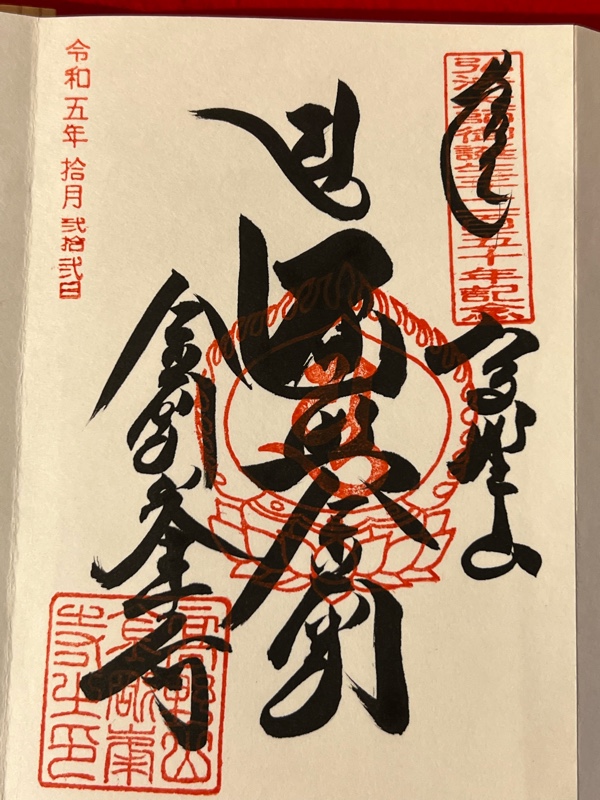 弘法大師御誕生千二百五十年記念
高野山
遍照金剛
金剛峯寺
令和五年 拾月 弐拾弐日
高野山
金剛峯
寺之印